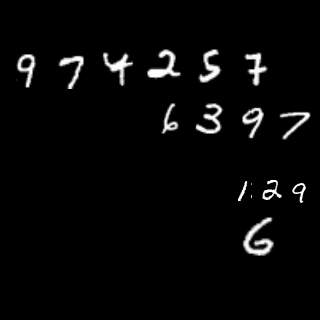 974257
6397
1:29
6